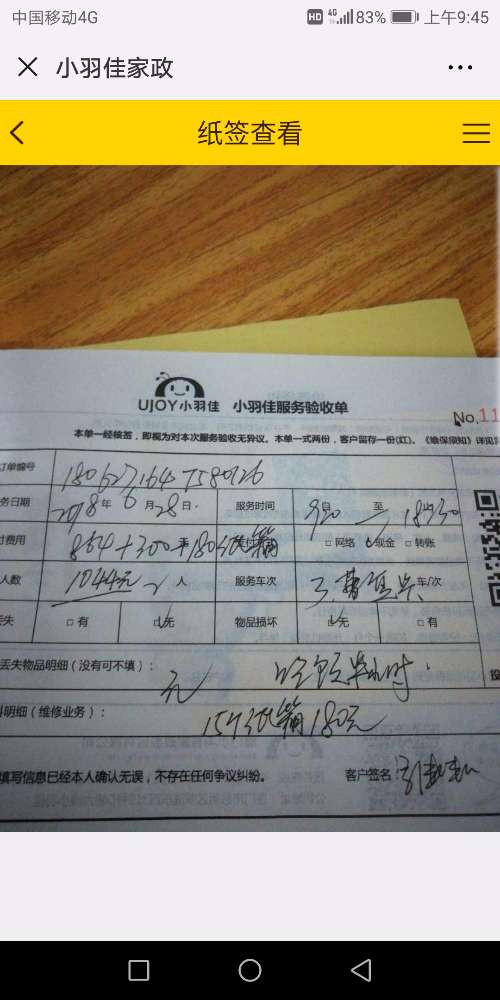 中国移动4G HD 4G 83% 上午9:45
小羽佳家政
纸签查看
UJOY小羽佳 小羽佳服务验收单
No.11
本单一经核签，即视为对本次服务验收无异议。本单一式两份，客户留存一份(红)。《维保须知》详见
订单编号 1806271647580126
务日期 2018年6月28日. 服务时间 920自 至 18:30
付费用 864+300+180纸箱 □网络 □现金 □转账
人数 1044元 人 服务车次 车/次
丢失 □有 □无 物品损坏 □无 □有
丢失物品明细（没有可不填）： 无
料明细（维修业务）： 15个纸箱180元
填写信息已经本人确认无误，不存在任何争议纠纷。 客户签名：